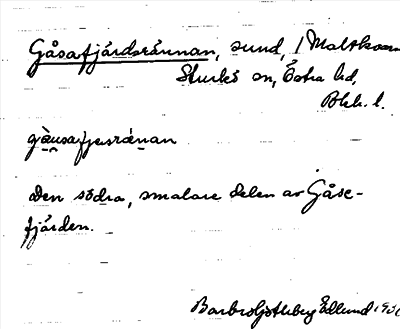 Gåsafjärdsrännan, sund, 1 Maltkvarn
Sturkö sn, Östra hd,
Blek. l.
gåusafjesrænan
Den södra, smalare delen av Gåse-
fjärden.
Barbro Edlund